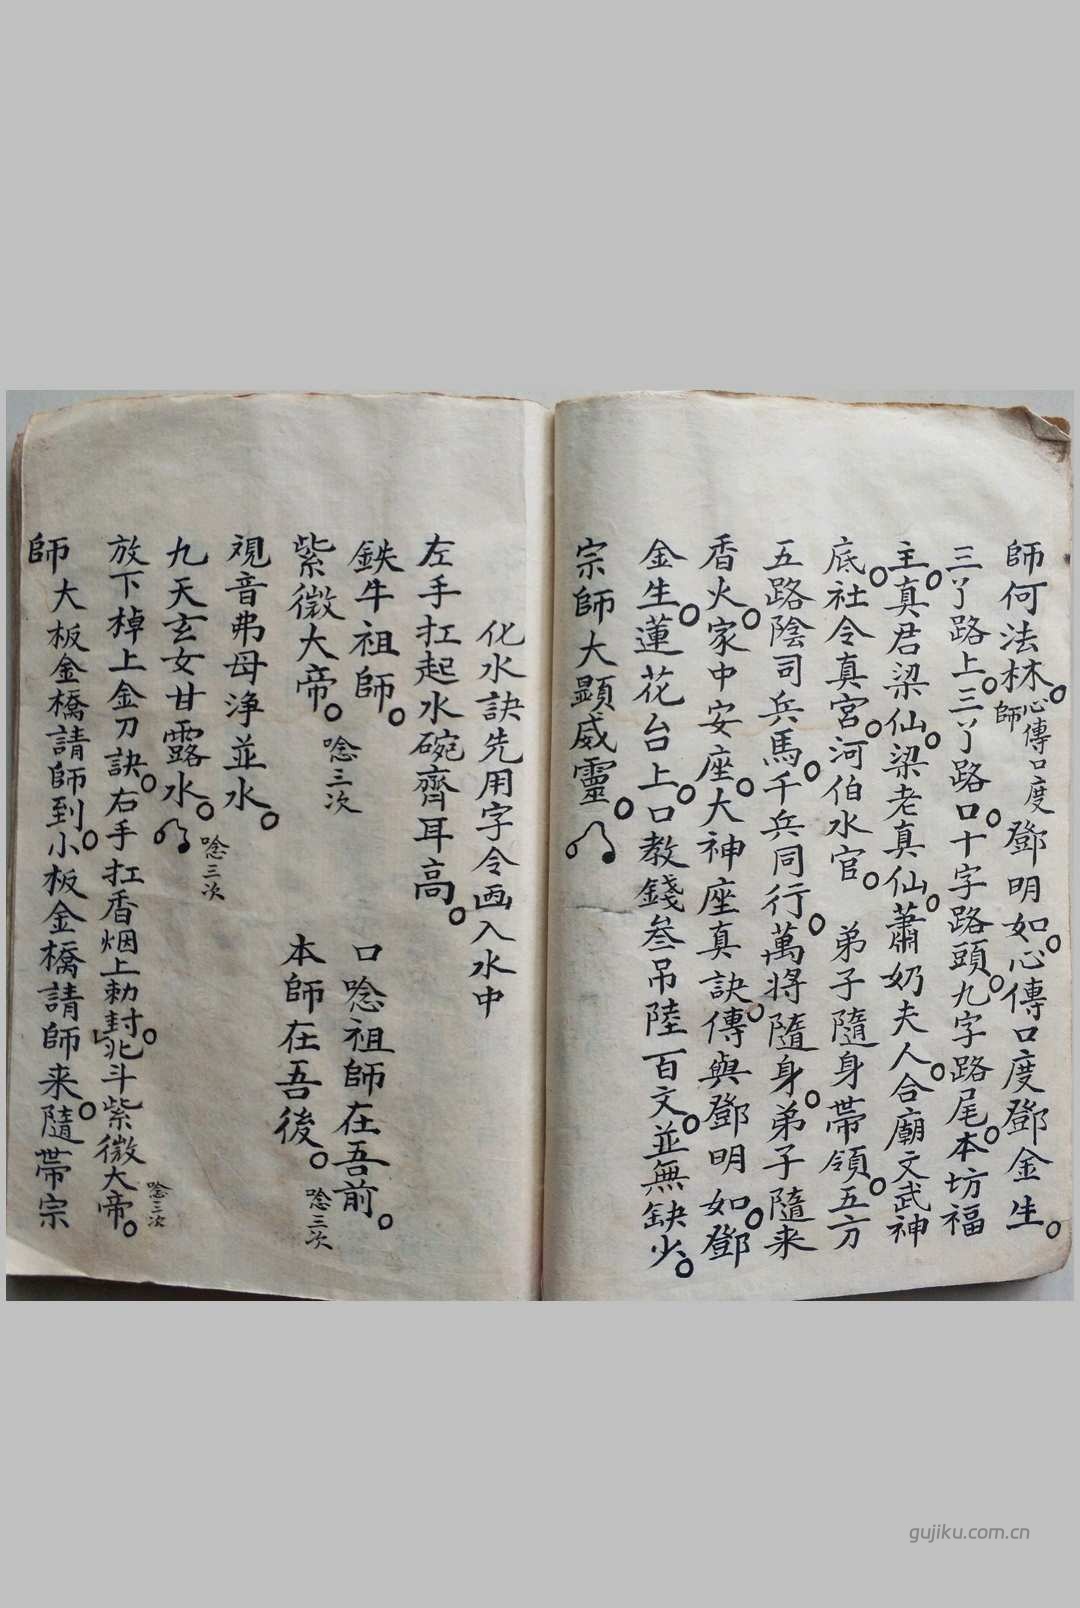 師何法林。心傳口度師鄧明如。心傳口度鄧金生。
三丫路上。三丫路口。十字路頭。九字路尾。本坊福
主。真君梁仙。梁老真仙。蕭奶夫人。合廟文武神
底。社令真宮。河伯水官。弟子隨身帶領。五方
五路陰司兵馬。千兵同行。萬將隨身。弟子隨来
香火。家中安座。大神座真訣。傳與鄧明如。鄧
金生。蓮花台上。口教錢叄吊陸百文。並無缺少。
宗師大顯威靈。
化水訣先用字令画入水中
左手扛起水碗齊耳高。
鉄牛祖師。口唸祖師在吾前。
紫微大帝。唸三次 本師在吾後。唸三次
視音弗母浄並水。
九天玄女甘露水。唸三次
放下棹上金刀訣。右手扛香烟上勅封。北斗紫微大帝。唸三次
師大板金橋請師到。小板金橋請師来。隨帶宗
gujiku.com.cn